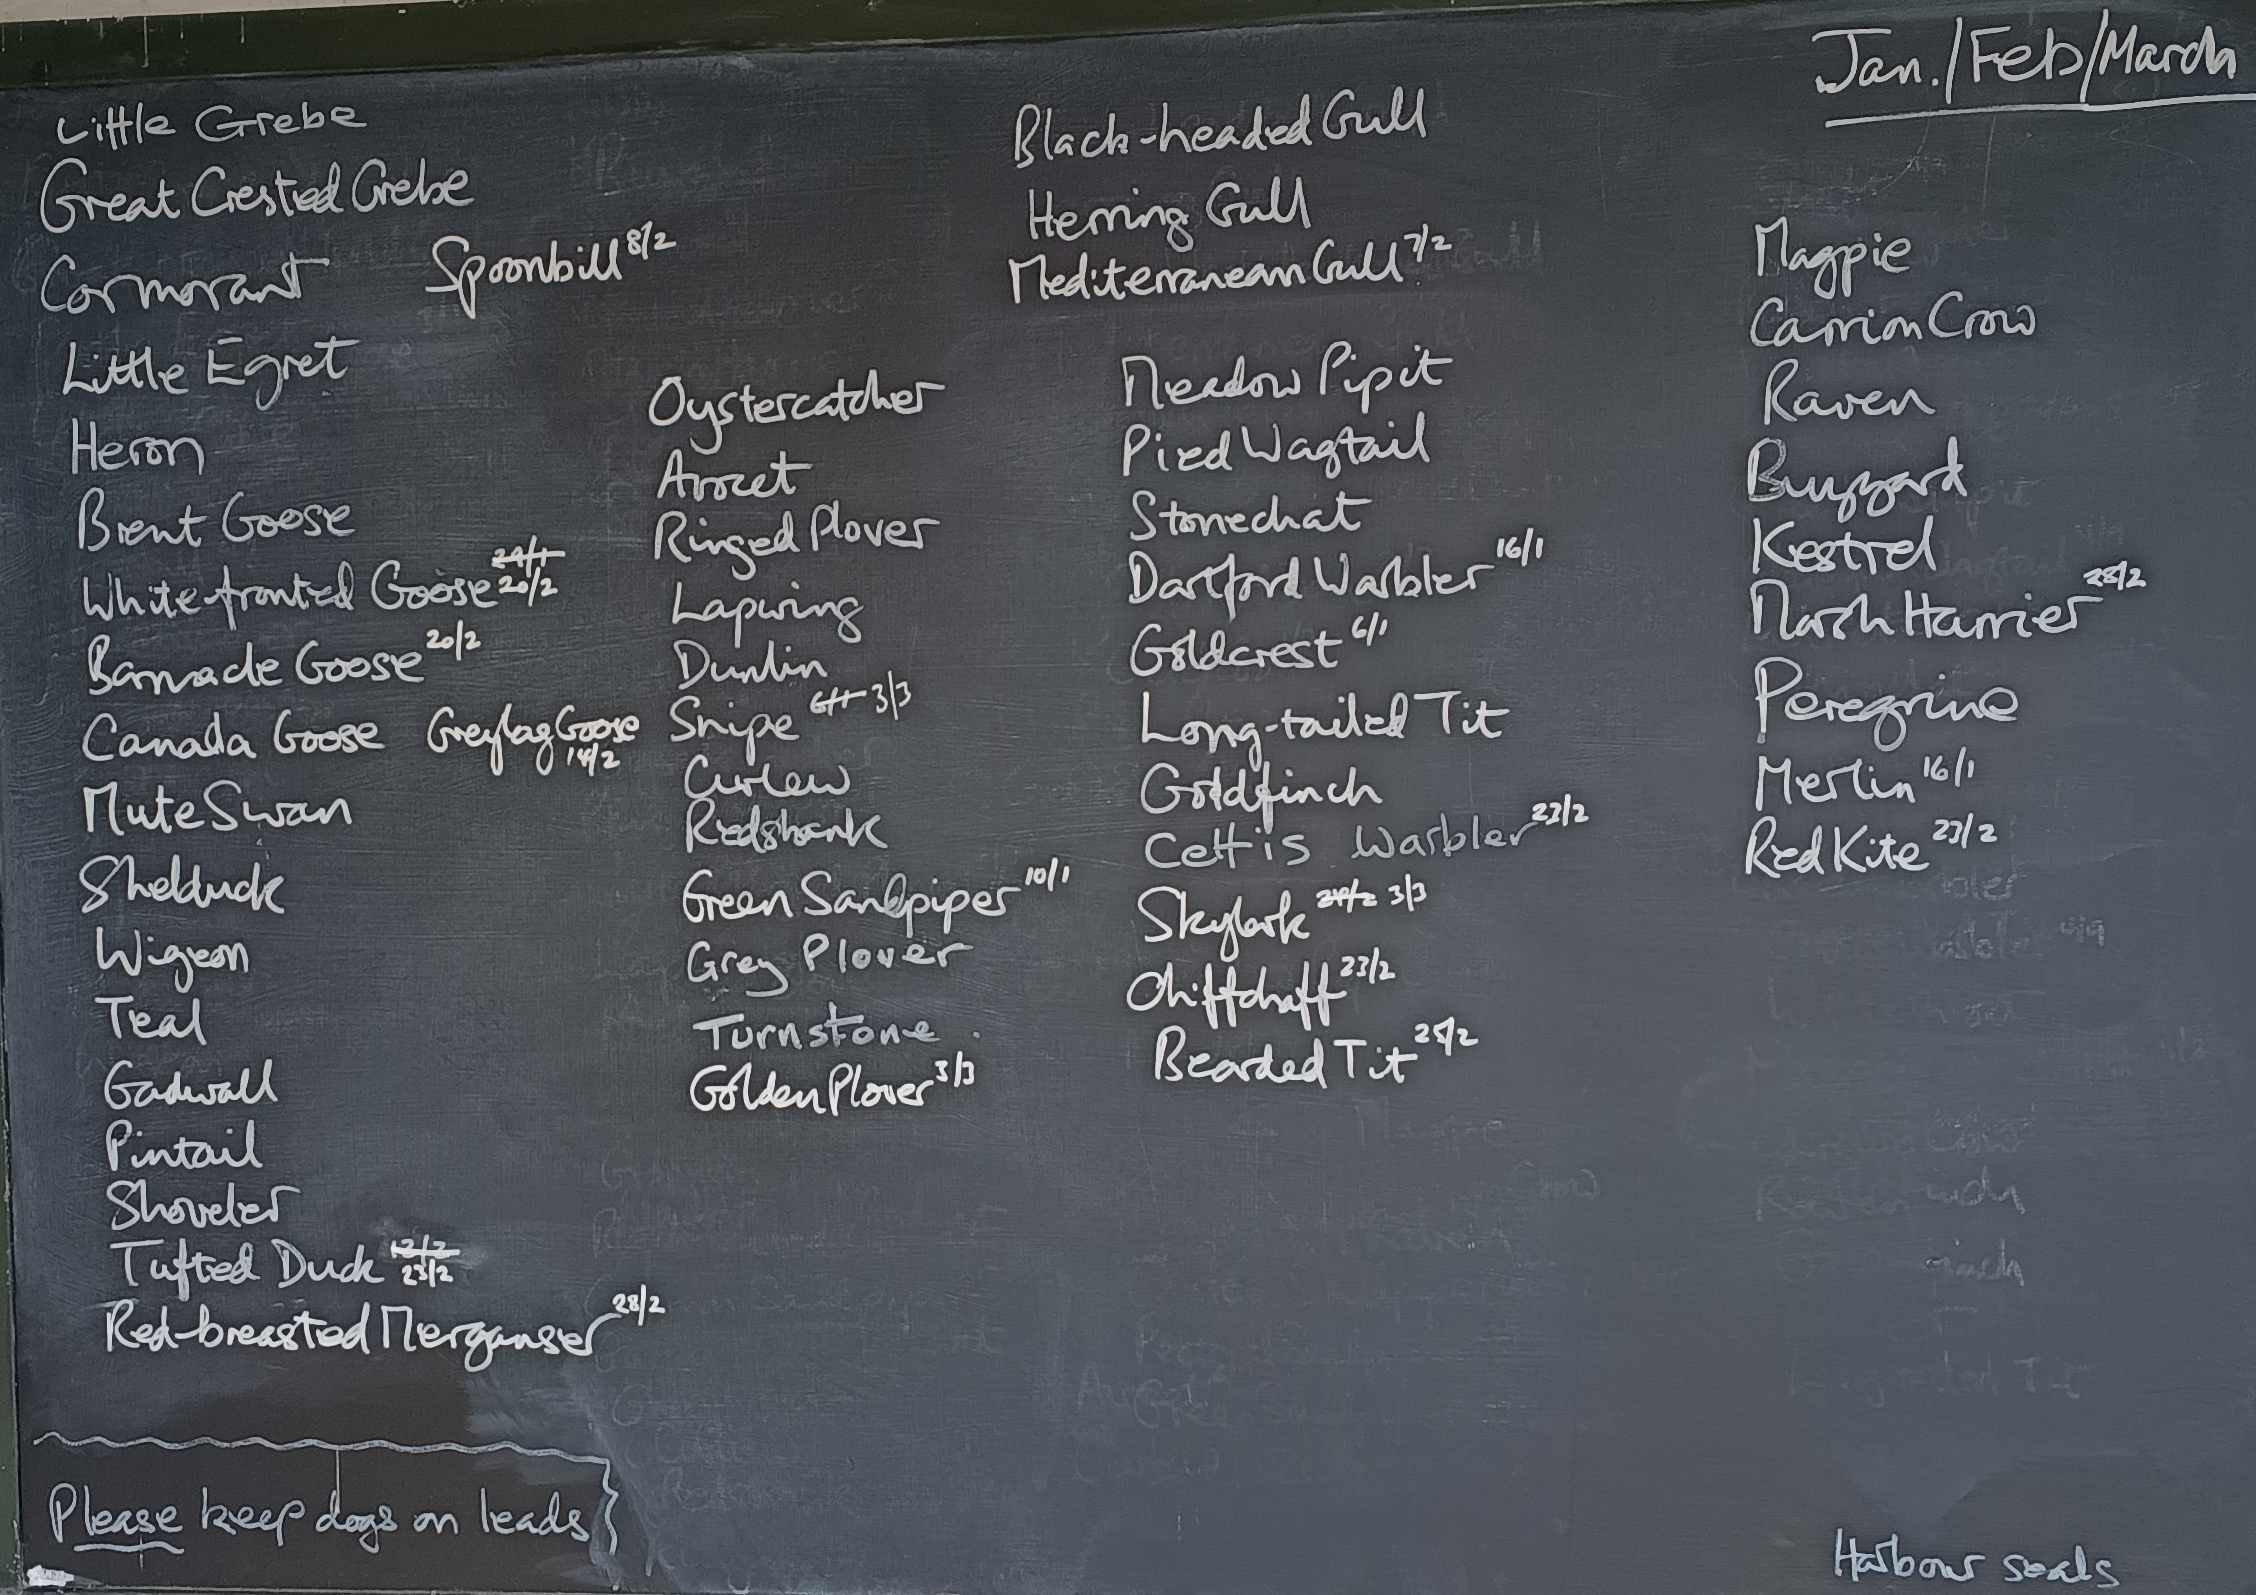 Jan./Feb/March
Little Grebe
Great Crested Grebe
Cormorant Spoonbill 8/2
Little Egret
Heron
Brent Goose
White-fronted Goose 24/1 20/2
Barnacle Goose 20/2
Canada Goose Greylag Goose 14/2
Mute Swan
Shelduck
Wigeon
Teal
Gadwall
Pintail
Shoveler
Tufted Duck 12/2 23/2
Red-breasted Merganser 28/2
Please keep dogs on leads
Oystercatcher
Avocet
Ringed Plover
Lapwing
Dunlin
Snipe 6/1 3/3
Curlew
Redshank
Green Sandpiper 10/1
Grey Plover
Turnstone
Golden Plover 3/3
Black-headed Gull
Herring Gull
Mediterranean Gull 7/2
Meadow Pipit
Pied Wagtail
Stonechat
Dartford Warbler 16/1
Goldcrest 6/1
Long-tailed Tit
Goldfinch
Cettis Warbler 23/2
Skylark 3/3
Chiffchaff 23/2
Bearded Tit
Magpie
Carrion Crow
Raven
Buzzard
Kestrel
Marsh Harrier 28/2
Peregrine
Merlin 16/1
Red Kite 23/2
Harbour seals